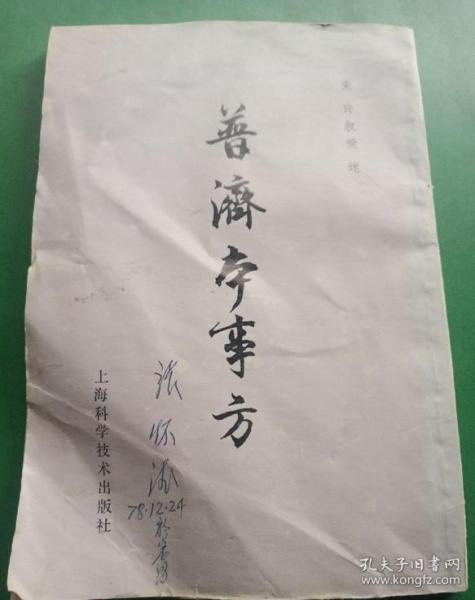 宋 许叔微 述
普濟本事方
上海科学技术出版社
张怀
78.12.24
孔夫子旧书网
kongfz.com